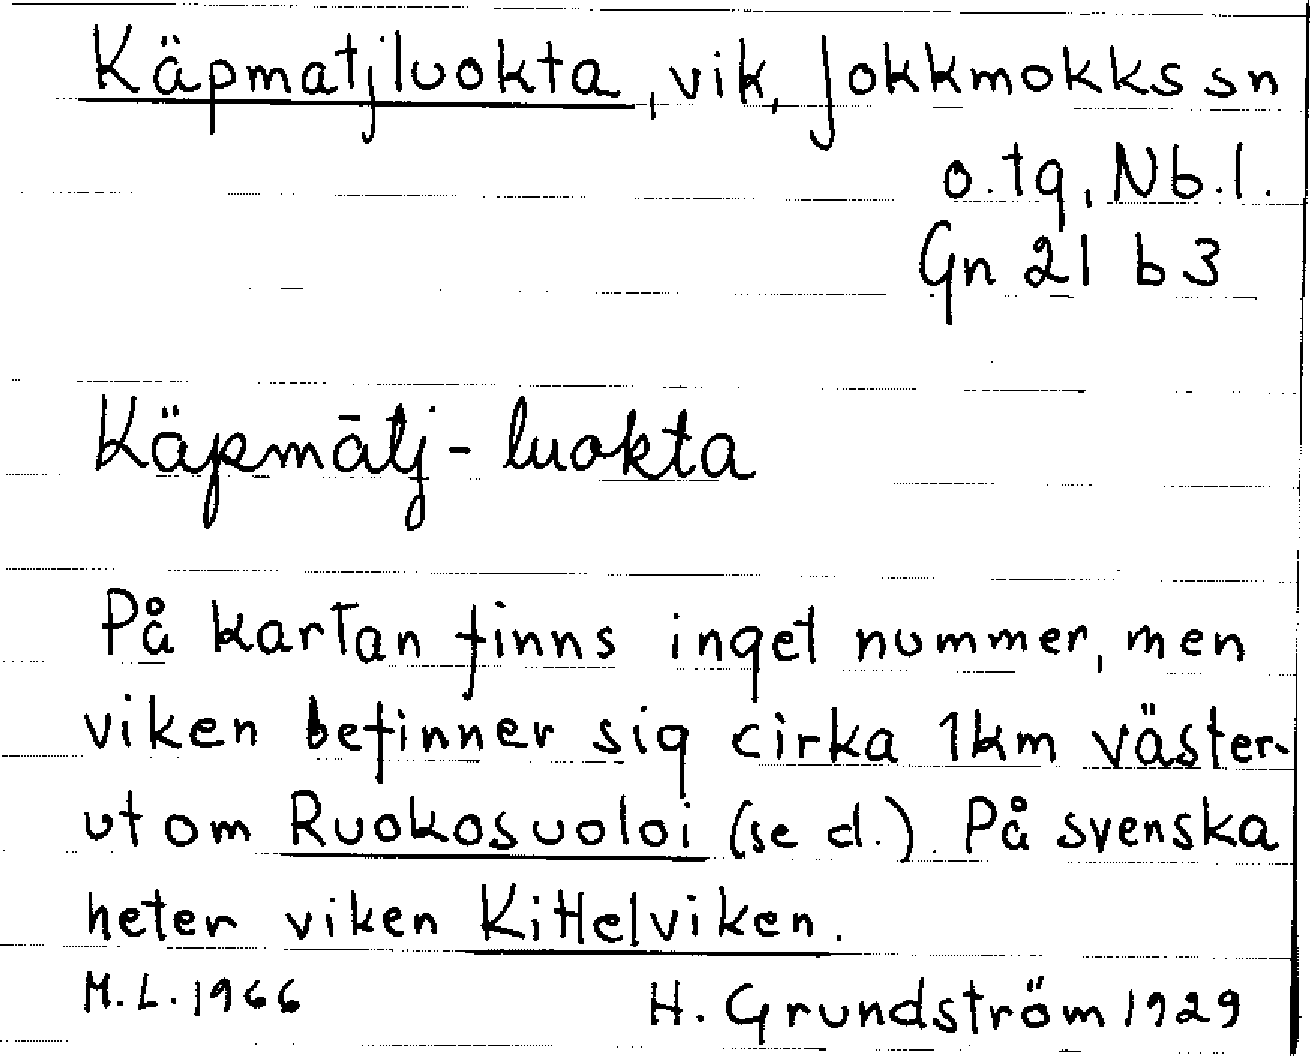 Käpmatjluokta, vik, Jokkmokks sn
o. tg, Nb. l.
Gn 21 b 3
Käpmātj-luokta
På kartan finns inget nummer, men
viken befinner sig cirka 1 km väster-
ut om Ruokosuoloi (se d.). På svenska
heter viken Kittelviken.
M. L. 1966 H. Grundström 1929